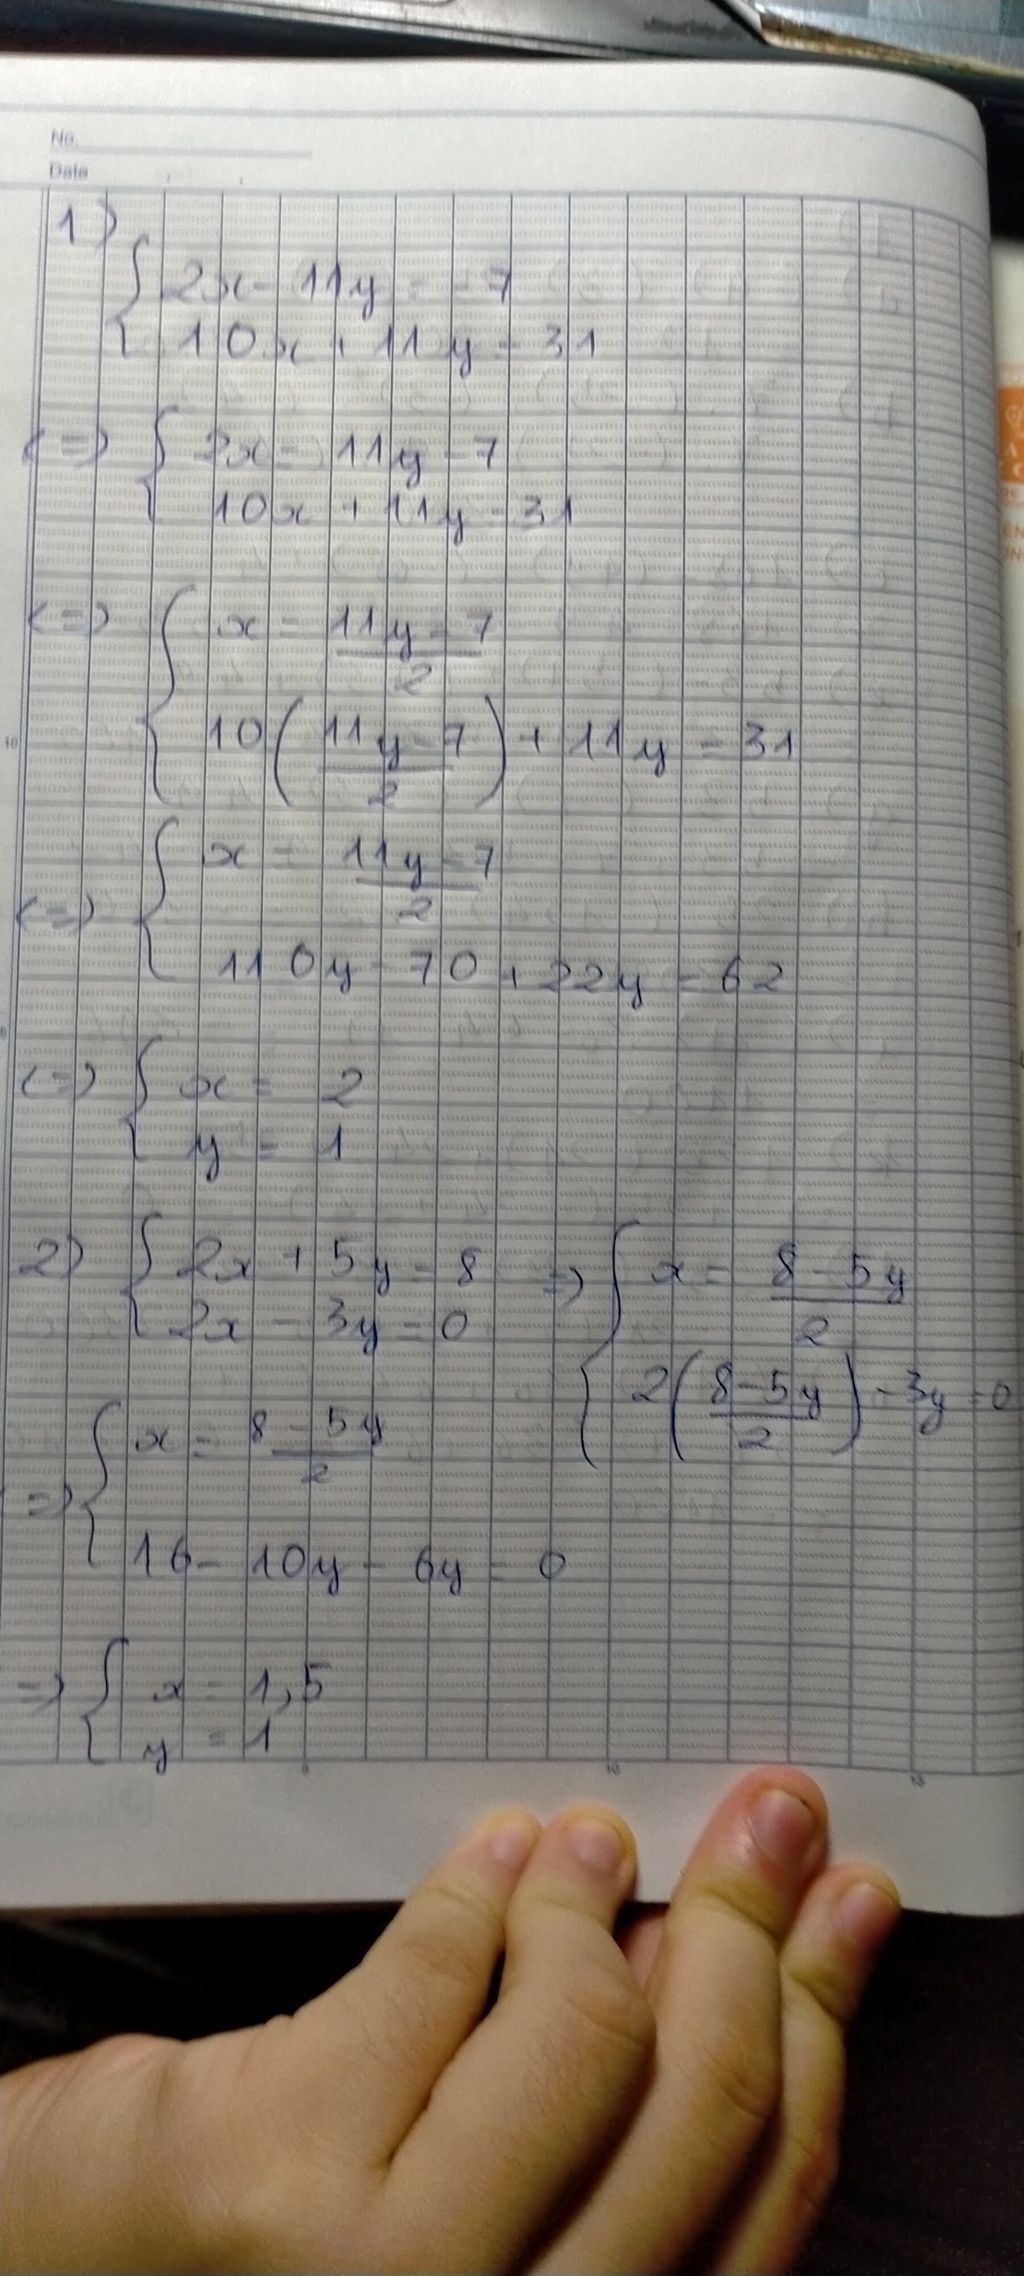 No.
Date
1)
{ 2x - 11y = -7
10x + 11y = 31
<=> { 2x = 11y - 7
10x + 11y = 31
<=> { x = (11y - 7)/2
10((11y - 7)/2) + 11y = 31
<=> { x = (11y - 7)/2
110y - 70 + 22y = 62
<=> { x = 2
y = 1
2) { 2x + 5y = 8
2x - 3y = 0
=> { x = (8 - 5y)/2
2((8 - 5y)/2) - 3y = 0
=> { x = (8 - 5y)/2
16 - 10y - 6y = 0
=> { x = 1,5
y = 1
10
5
10
15